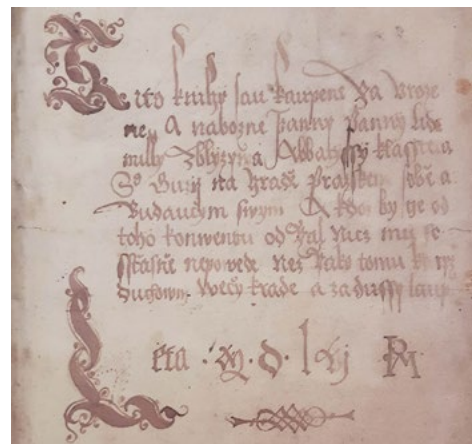 Tito knihy sau kaupene Za Uroze
ne A nabozne panny panny Lid
mily Zblyzyna Abbatyssy klasstera
S Na hradie Prazskem sobe a
Budaucym A kdoz by ge od
toho konwentu od dal Nicz mu se
sstastie nepovede Nez Yako tomu
duchowni weczy krade a za dussy laup
Leta · M · D · lvj